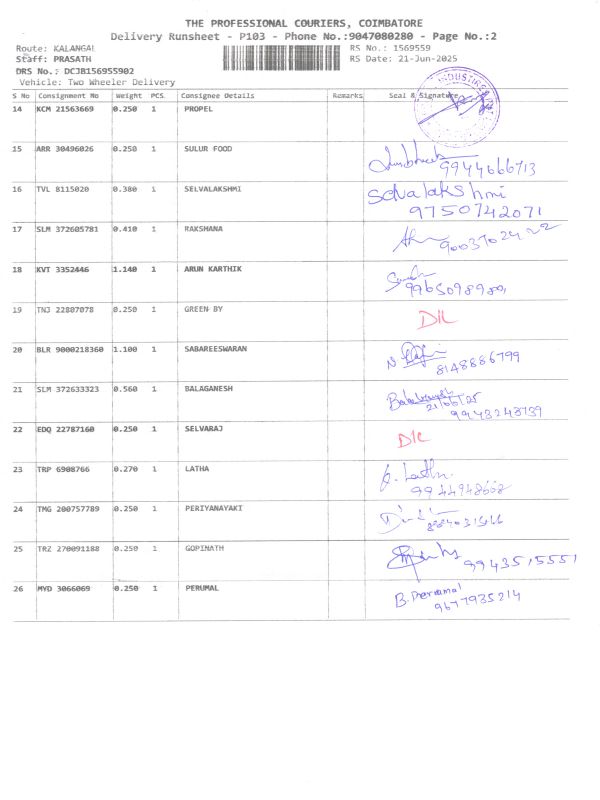 THE PROFESSIONAL COURIERS, COIMBATORE
Delivery Runsheet - P103 - Phone No.:9047080280 - Page No.:2
Route: KALANGAL RS No.: 1569559
Staff: PRASATH RS Date: 21-Jun-2025
DRS No.: DCJB156955902
Vehicle: Two Wheeler Delivery
S No Consignment No Weight PCS. Consignee Details Remarks Seal & Signature
14 KCM 21563669 0.250 1 PROPEL
15 ARR 30496026 0.250 1 SULUR FOOD
9944666713
16 TVL 8115020 0.380 1 SELVALAKSHMI Selvalakshmi
9750742071
17 SLM 372605781 0.410 1 RAKSHANA
18 KVT 3352446 1.140 1 ARUN KARTHIK
19 TNJ 22807078 0.250 1 GREEN BY
20 BLR 9000218360 1.100 1 SABAREESWARAN
8148886799
21 SLM 372633323 0.560 1 BALAGANESH
21/06/25
9943243739
22 EDQ 22787160 0.250 1 SELVARAJ
23 TRP 6908766 0.270 1 LATHA
9944948668
24 TMG 200757789 0.250 1 PERIYANAYAKI
25 TRZ 270091188 0.250 1 GOPINATH
9943515551
26 MYD 3066069 0.250 1 PERUMAL B. Perumal
9677935214